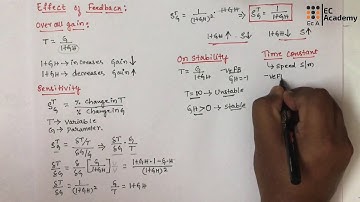 Effect of Feedback:
Overall gain:
T = G / 1+GH
1+GH → increases Gain ↓
1+GH → decreases Gain ↑
Sensitivity
S^T_G = % Change in T / % Change in G
T → Variable
G → Parameter.
S^T_G = ∂T/T / ∂G/G = ∂T/∂G · G/T
∂T/∂G = ∂/∂G [G / 1+GH] = (1+GH)·1 - G·H / (1+GH)²
∂T/∂G = 1 / (1+GH)² G/T = 1+GH
S^T_G = 1 / (1+GH)² · 1+GH ⇒ S^T_G = 1 / 1+GH
1+GH ↑ S ↓ 1+GH ↓ S ↑
On Stability
T = G / 1+GH -veFB GH=-1
T = ∞ → Unstable
GH > 0 → Stable
Time Constant
↳ Speed S/m
-veF
EC Academy
ECA